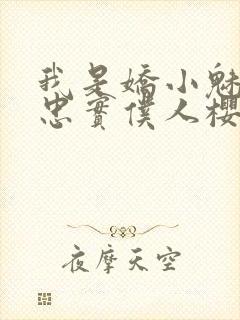 我是嬌小魅
忠實僕人櫻
夜摩天空